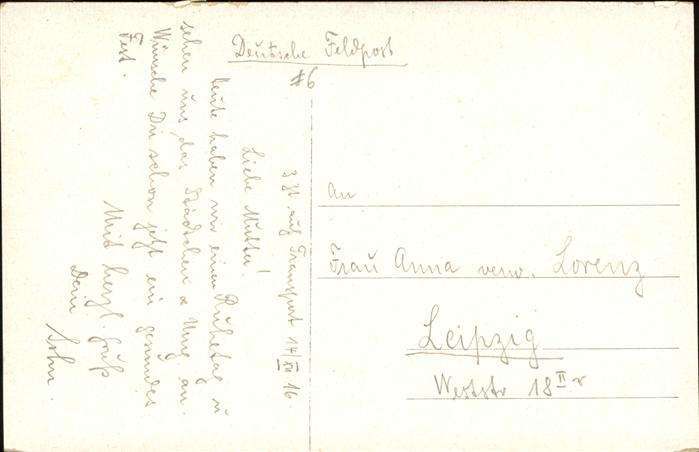 Deutsche Feldpost
#6
z. Zt. auf Transport 14/XII 16.
Liebe Mutter!
heute haben wir einen Ruhetag u
sehen uns das Städtchen & Umg an.
Wünsche Dir schon jetzt ein gesundes
Fest.
Mit herzl. Gruß
Dein
Sohn.
An
Frau Anna verw. Lorenz
Leipzig
Weststr 18 II r